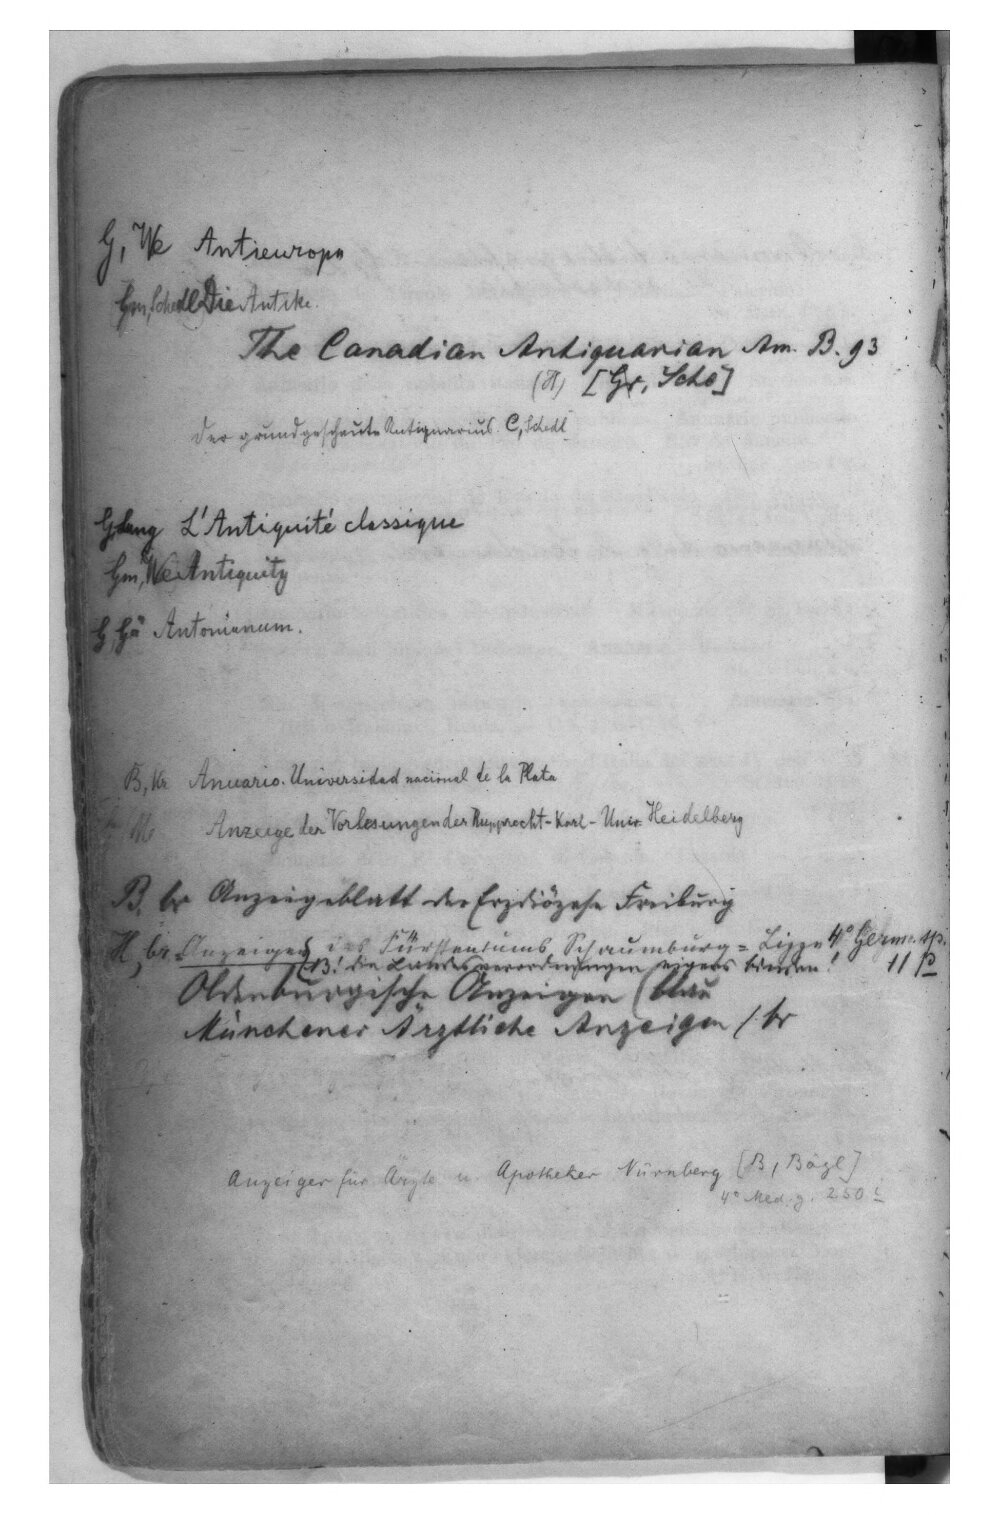 G, We Antieuropa
Gm, Schedl Die Antike.
The Canadian Antiquarian Am. B. 93
(H) [Gr, Schö]
Der grundgescheute Antiquarius. C, Schedl
G Lang L'Antiquité classique
Gm, We Antiquity
G, Gä Antonianum.
B, Kr Anuario. Universidad nacional de la Plata
Me Anzeige der Vorlesungen der Rupprecht-Karl-Univ. Heidelberg
B, br Anzeigeblatt der Erzdiözese Freiburg
H, br. Anzeigen des Fürstentums Schaumburg= Lippe 4° Germ. sp.
(B! die Landesverordnungen eigens binden! 11 p
Oldenburgische Anzeigen (blau
Münchener Ärztliche Anzeigen / br
Anzeiger für Ärzte u. Apotheker Nürnberg [B, Bögl]
4° Med. g. 250